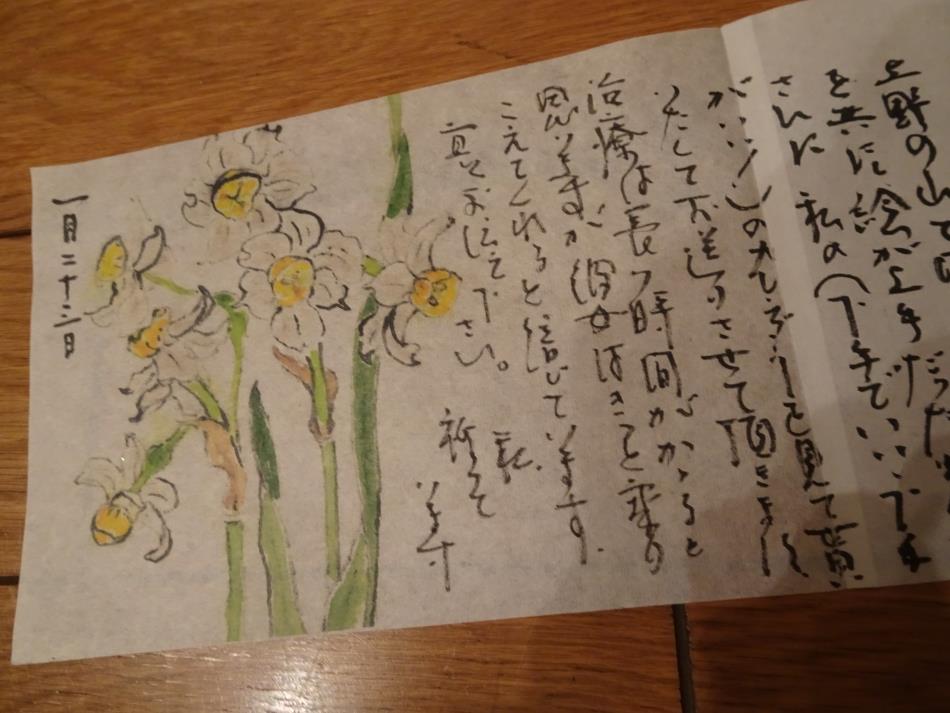 上野の山で
を共に絵が上手だった
さんに 私の(下手でいいヘタ
がいい)のカレンダーを見て貰い
たくて お送りさせて頂きました
治療は長い時間がかかると
思いますが 彼女はきっと乗り
こえてくれると信じています。
宜しくお伝え下さい。
祈って
います
一月二十三日